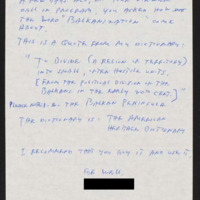 NOT
THE WORD "BALKANIZATION" COME
ABOUT.
THIS IS A QUOTE FROM MY DICTIONARY:
"TO DIVIDE (A REGION OR TERRITORY)
INTO SMALL, OFTEN HOSTILE UNITS.
[FROM THE POLITICAL DIVISION OF THE
BALKANS IN THE EARLY 20TH CENT.]"
THE BALKAN PENINSULA
THE DICTIONARY IS: THE AMERICAN
HERITAGE DICTIONARY
I RECOMMEND THAT YOU BUY IT AND USE IT